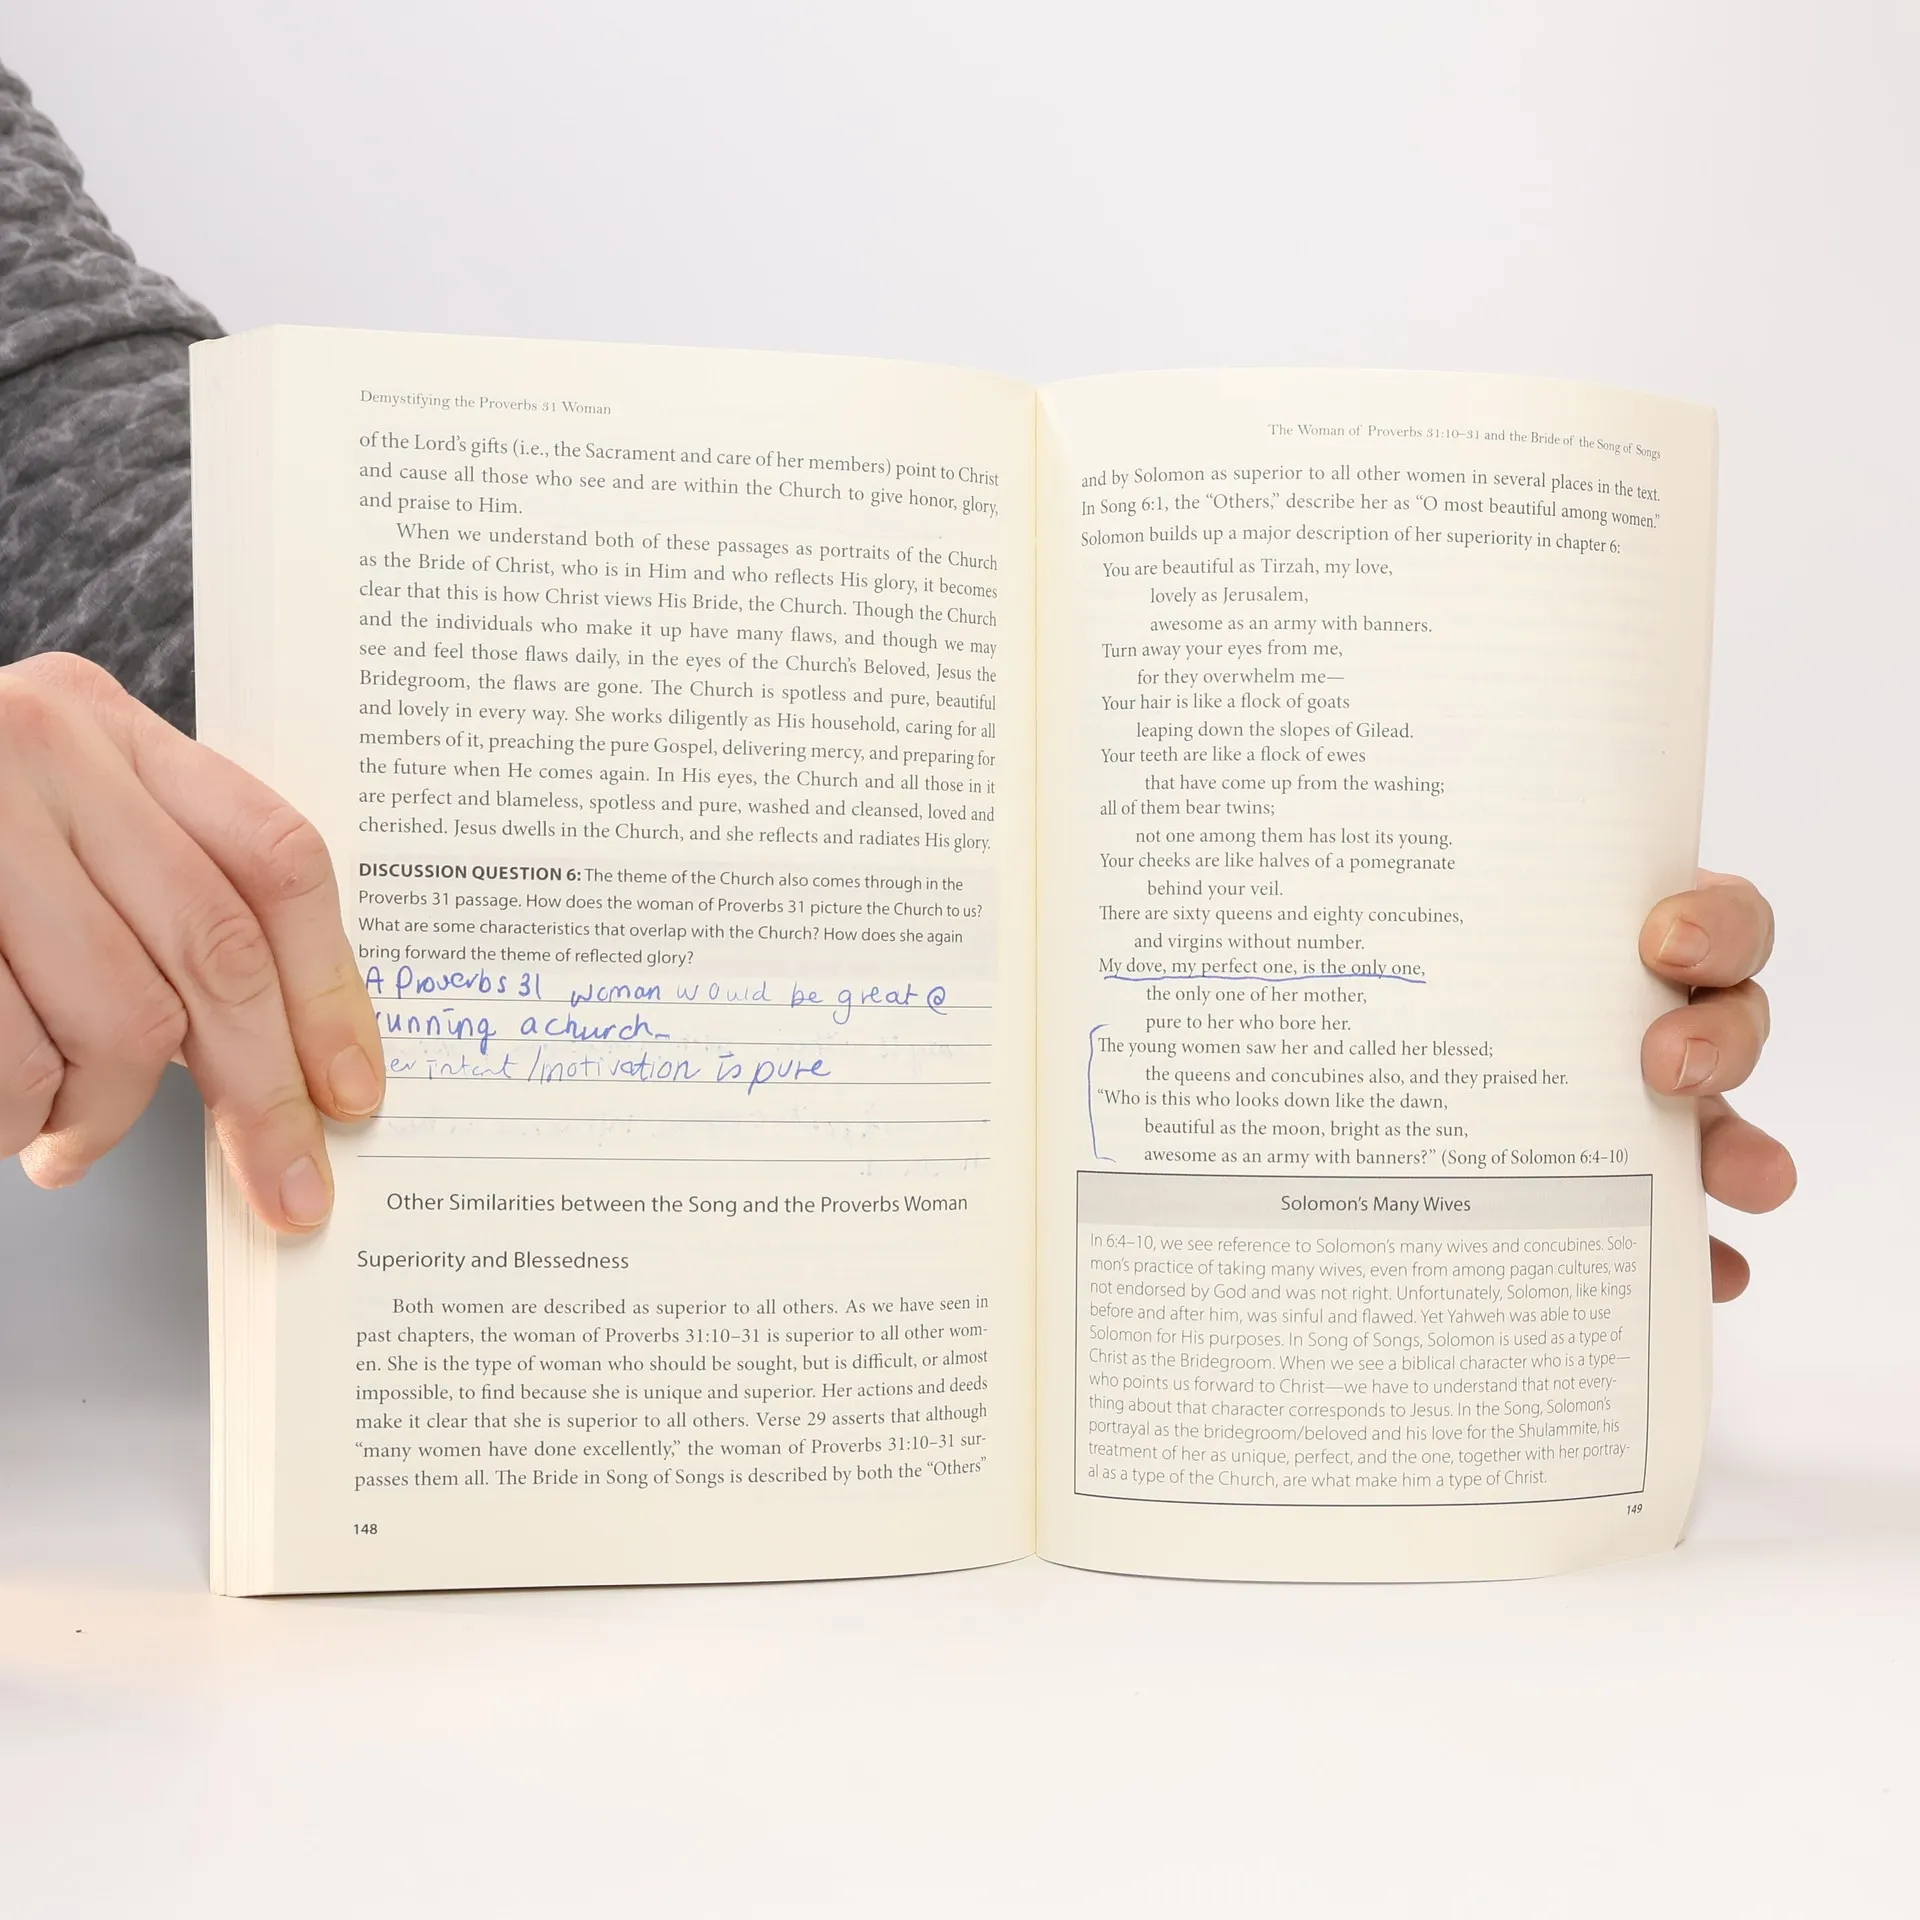 Demystifying the Proverbs 31 Woman
of the Lord's gifts (i.e., the Sacrament and care of her members) point to Christ
and cause all those who see and are within the Church to give honor, glory,
and praise to Him.
When we understand both of these passages as portraits of the Church
as the Bride of Christ, who is in Him and who reflects His glory, it becomes
clear that this is how Christ views His Bride, the Church. Though the Church
and the individuals who make it up have many flaws, and though we may
see and feel those flaws daily, in the eyes of the Church's Beloved, Jesus the
Bridegroom, the flaws are gone. The Church is spotless and pure, beautiful
and lovely in every way. She works diligently as His household, caring for all
members of it, preaching the pure Gospel, delivering mercy, and preparing for
the future when He comes again. In His eyes, the Church and all those in it
are perfect and blameless, spotless and pure, washed and cleansed, loved and
cherished. Jesus dwells in the Church, and she reflects and radiates His glory.
DISCUSSION QUESTION 6: The theme of the Church also comes through in the
Proverbs 31 passage. How does the woman of Proverbs 31 picture the Church to us?
What are some characteristics that overlap with the Church? How does she again
bring forward the theme of reflected glory?
A Proverbs 31 woman would be great @
running a church
er intent/motivation is pure
Other Similarities between the Song and the Proverbs Woman
Superiority and Blessedness
Both women are described as superior to all others. As we have seen in
past chapters, the woman of Proverbs 31:10–31 is superior to all other wom-
en. She is the type of woman who should be sought, but is difficult, or almost
impossible, to find because she is unique and superior. Her actions and deeds
make it clear that she is superior to all others. Verse 29 asserts that although
“many women have done excellently,” the woman of Proverbs 31:10–31 sur-
passes them all. The Bride in Song of Songs is described by both the “Others”
148
The Woman of Proverbs 31:10–31 and the Bride of the Song of Songs
and by Solomon as superior to all other women in several places in the text.
In Song 6:1, the “Others,” describe her as “O most beautiful among women.”
Solomon builds up a major description of her superiority in chapter 6:
You are beautiful as Tirzah, my love,
lovely as Jerusalem,
awesome as an army with banners.
Turn away your eyes from me,
for they overwhelm me—
Your hair is like a flock of goats
leaping down the slopes of Gilead.
Your teeth are like a flock of ewes
that have come up from the washing;
all of them bear twins;
not one among them has lost its young.
Your cheeks are like halves of a pomegranate
behind your veil.
There are sixty queens and eighty concubines,
and virgins without number.
My dove, my perfect one, is the only one,
the only one of her mother,
pure to her who bore her.
The young women saw her and called her blessed;
the queens and concubines also, and they praised her.
“Who is this who looks down like the dawn,
beautiful as the moon, bright as the sun,
awesome as an army with banners?” (Song of Solomon 6:4–10)
Solomon's Many Wives
In 6:4–10, we see reference to Solomon's many wives and concubines. Solo-
mon's practice of taking many wives, even from among pagan cultures, was
not endorsed by God and was not right. Unfortunately, Solomon, like kings
before and after him, was sinful and flawed. Yet Yahweh was able to use
Solomon for His purposes. In Song of Songs, Solomon is used as a type of
Christ as the Bridegroom. When we see a biblical character who is a type—
who points us forward to Christ—we have to understand that not every-
thing about that character corresponds to Jesus. In the Song, Solomon's
portrayal as the bridegroom/beloved and his love for the Shulammite, his
treatment of her as unique, perfect, and the one, together with her portray-
al as a type of the Church, are what make him a type of Christ.
149